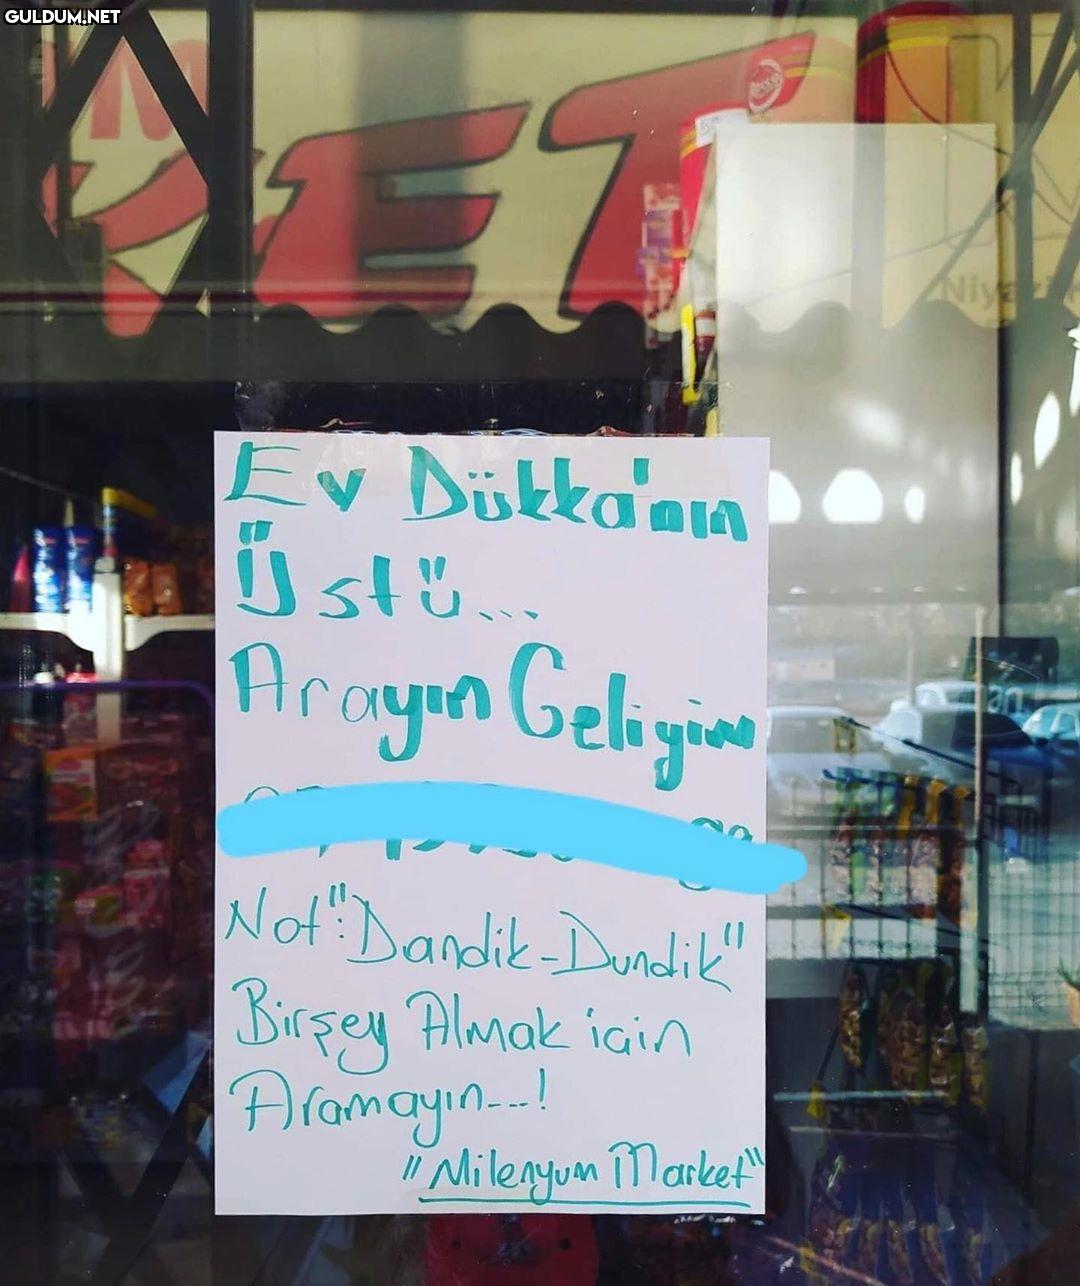 GULDUM.NET
M
KET
Ev Dükka'nın
Üstü...
Arayın Geliyim
Not":Dandik-Dundik"
Birşey Almak için
Aramayın---!
"Milenyum Market"